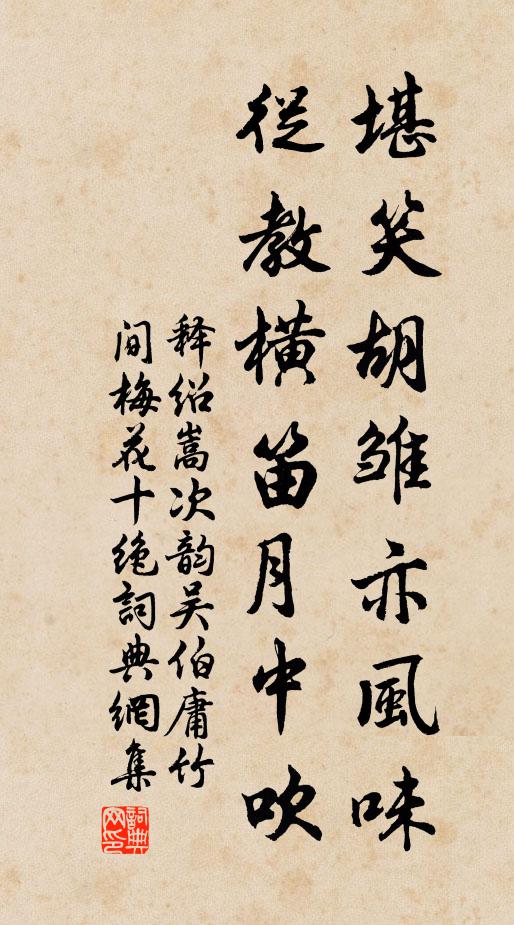 堪笑胡雛亦風味
從教橫笛月中吹
释绍嵩次韵吴伯庸竹
间梅花十绝詞典網集
詞典网印